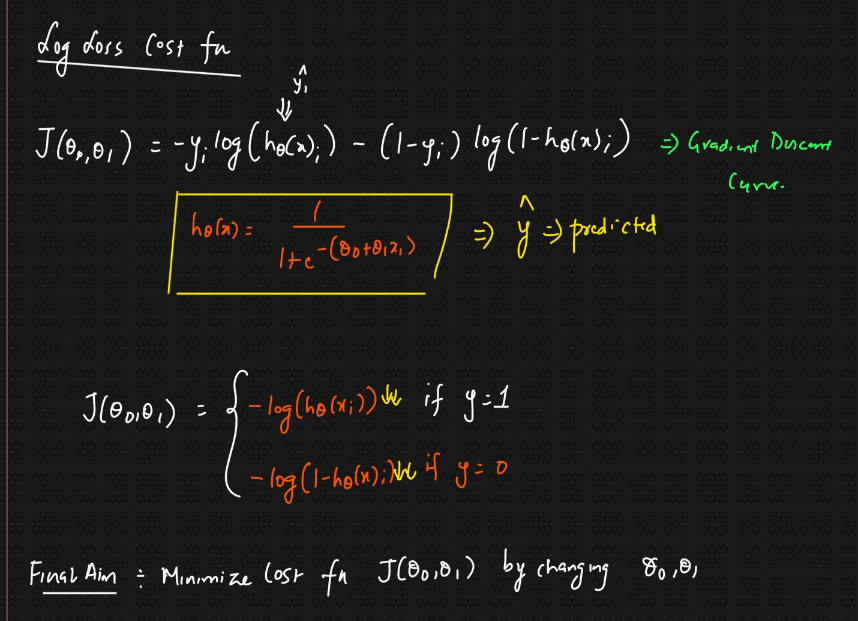 Log Loss Cost fn
ŷᵢ
⇓
J(θ₀,θ₁) = -yᵢ log(hθ(x)ᵢ) - (1-yᵢ) log(1-hθ(x)ᵢ) ⇒ Gradient Descent
Curve.
hθ(x) = 1 / 1+e^-(θ₀+θ₁x₁) ⇒ ŷ ⇒ predicted
J(θ₀,θ₁) = { -log(hθ(xᵢ)) if y=1
-log(1-hθ(x)ᵢ) if y=0
Final Aim ÷ Minimize Cost fn J(θ₀,θ₁) by changing θ₀,θ₁